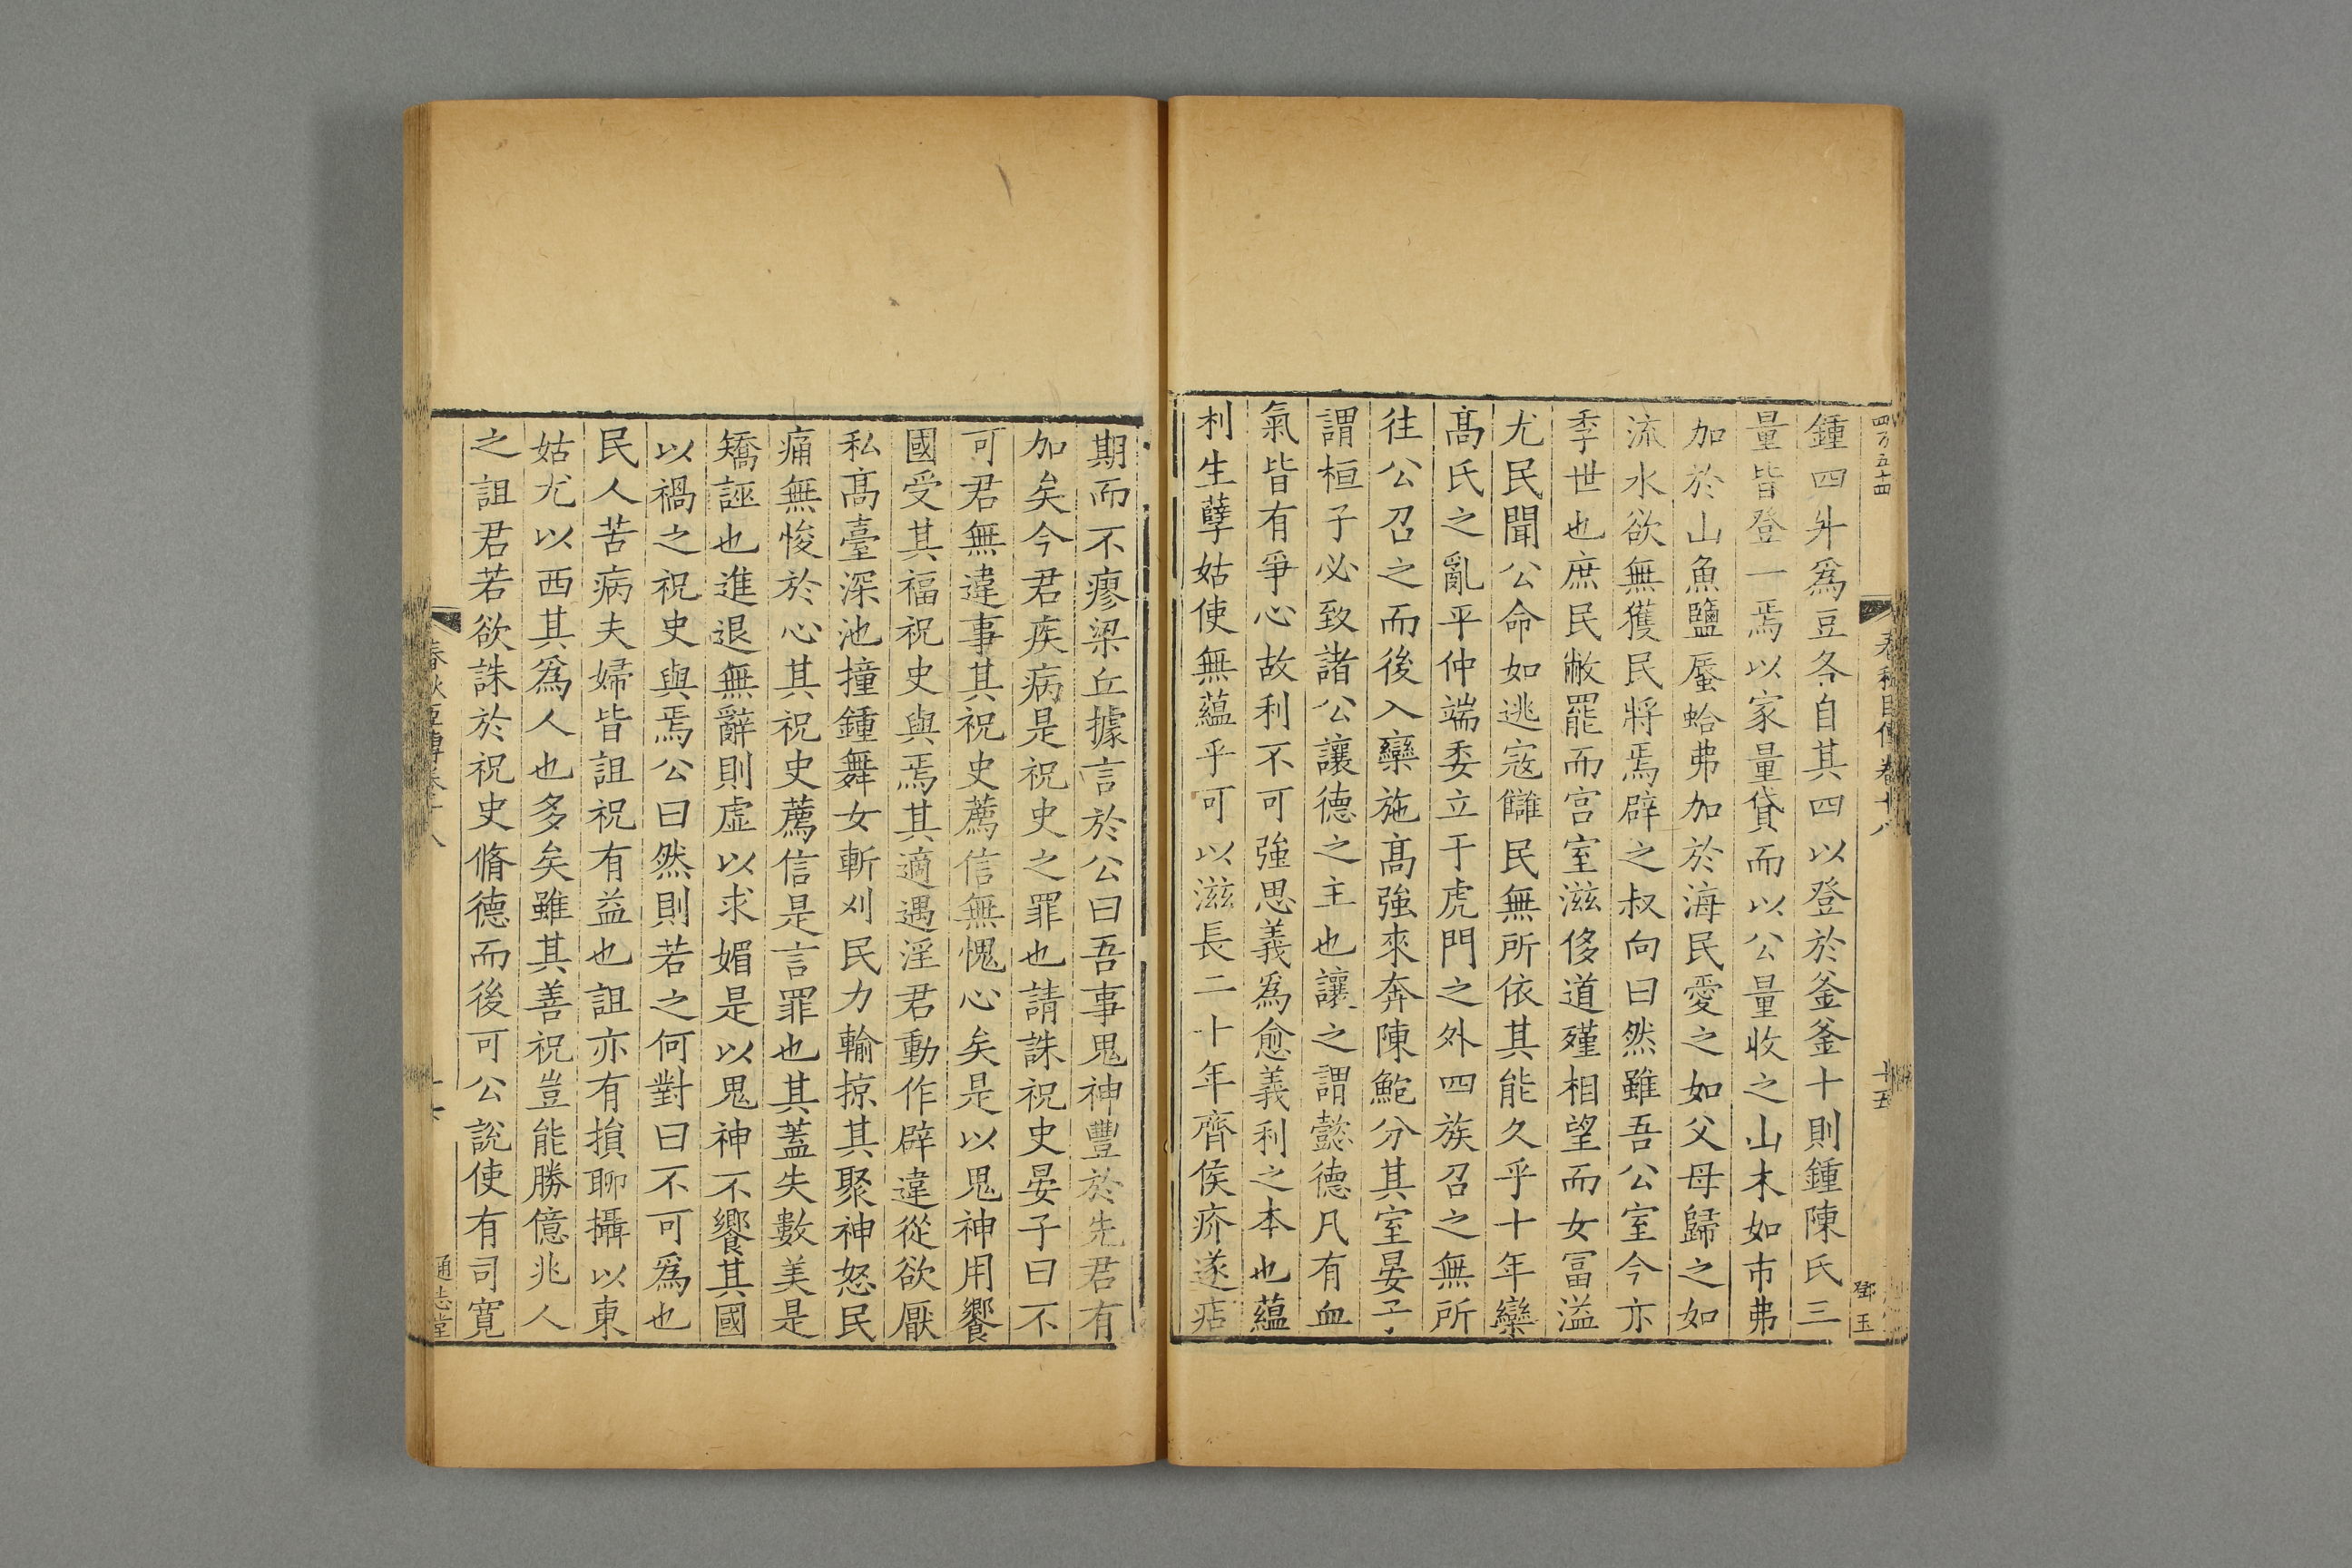 四万五十四
春秋臣傳卷十八
十五
鄧玉
鍾四升爲豆各自其四以登於釜釜十則鍾陳氏三
量皆登一焉以家量貸而以公量收之山木如市弗
加於山魚鹽蜃蛤弗加於海民愛之如父母歸之如
流水欲無獲民將焉辟之叔向曰然雖吾公室今亦
季世也庶民敝罷而宫室滋侈道殣相望而女冨溢
尤民聞公命如逃寇讎民無所依其能久乎十年欒
髙氏之亂平仲端委立于虎門之外四族召之無所
徃公召之而後入欒施髙強來奔陳鮑分其室晏子
謂桓子必致諸公讓德之主也讓之謂懿德凡有血
氣皆有爭心故利不可強思義爲愈義利之本也蘊
利生孽姑使無藴乎可以滋長二十年齊侯疥遂痁
期而不瘳梁丘據言於公曰吾事鬼神豐於先君有
加矣今君疾病是祝史之罪也請誅祝史晏子曰不
可君無違事其祝史薦信無愧心矣是以鬼神用饗
國受其福祝史與焉其適遇淫君動作辟違從欲厭
私髙臺深池撞鍾舞女斬刈民力輸掠其聚神怒民
痛無悛於心其祝史薦信是言罪也其蓋失數美是
矯誣也進退無辭則虛以求媚是以鬼神不饗其國
以禍之祝史與焉公曰然則若之何對曰不可爲也
民人苦病夫婦皆詛祝有益也詛亦有損聊攝以東
姑尤以西其爲人也多矣雖其善祝豈能勝億兆人
之詛君若欲誅於祝史脩德而後可公說使有司寬
春秋臣傳卷十八
通志堂